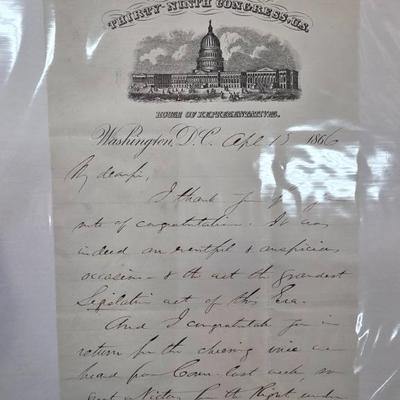 THIRTY-NINTH CONGRESS, U.S.
HOUSE OF REPRESENTATIVES.
Washington, D.C. Apl 13 1866
My dear Sir,
I thank you for your
note of congratulation. It was
indeed an eventful & auspicious
occasion & the act the grandest
Legislative act of this Era.
And I congratulate you in
return for the cheering voice we
heard from Conn. last week, so
great a victory for the Right under